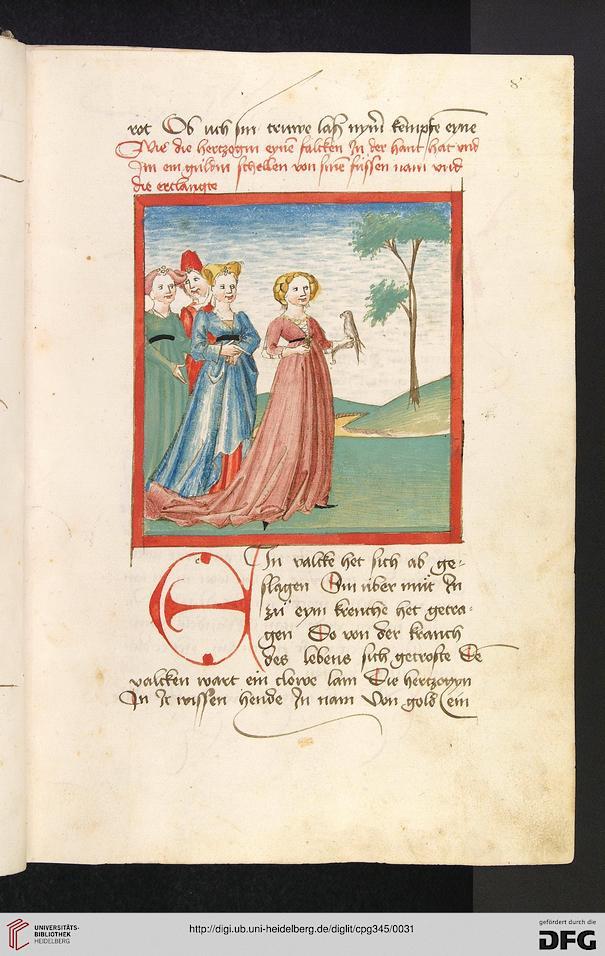 8
rot Ob uch sin truwe laß nym kempfe eyne
Wie die hertzogin eyne falcken In der hant hat vnd
Im ein guldin schellen von sinen fussen nam vnd
die erclangte
EIn valcke het sich ab ge-
slagen Sin uber müt In
zü eym krenche het getra-
gen Do von der kranch
des lebens sich getroste De
valcken wart ein clowe lam Die hertzogyn
In Ir wissen hende In nam Von gold ein
UNIVERSITÄTS-
BIBLIOTHEK
HEIDELBERG
http://digi.ub.uni-heidelberg.de/diglit/cpg345/0031
gefördert durch die
DFG